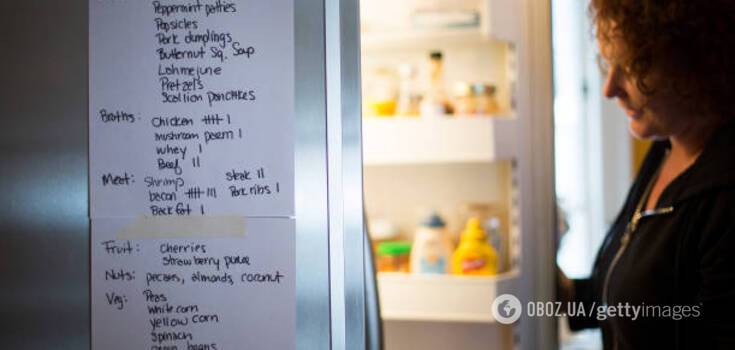 Peppermint patties
Popsicles
Pork dumplings
Butternut Sq. Soup
Lahmejune
Pretzels
Scallion pancakes
Broths: Chicken 卌 I
mushroom parm I
whey I
Beef II
Meat: Shrimp steak II
bacon 卌 III Pork ribs I
Back fat I
Fruit: Cherries
Strawberry puree
Nuts: pecans, almonds, coconut
Veg: Peas
white corn
yellow corn
Spinach
green beans
OBOZ.UA/gettyimages